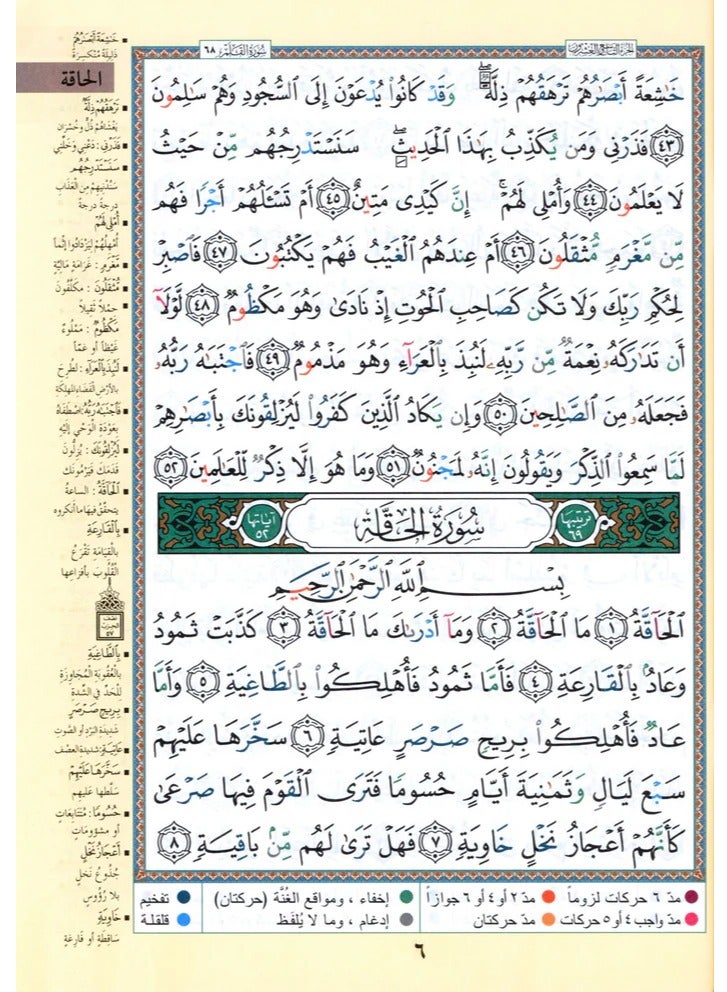 الجزء التاسع والعشرون
سُورَةُ القَلَم ٦٨
خَٰشِعَةً أَبْصَٰرُهُمْ تَرْهَقُهُمْ ذِلَّةٌ ۖ وَقَدْ كَانُوا۟ يُدْعَوْنَ إِلَى ٱلسُّجُودِ وَهُمْ سَٰلِمُونَ
﴿٤٣﴾ فَذَرْنِى وَمَن يُكَذِّبُ بِهَٰذَا ٱلْحَدِيثِ ۖ سَنَسْتَدْرِجُهُم مِّنْ حَيْثُ
لَا يَعْلَمُونَ ﴿٤٤﴾ وَأُمْلِى لَهُمْ ۚ إِنَّ كَيْدِى مَتِينٌ ﴿٤٥﴾ أَمْ تَسْـَٔلُهُمْ أَجْرًا فَهُم
مِّن مَّغْرَمٍ مُّثْقَلُونَ ﴿٤٦﴾ أَمْ عِندَهُمُ ٱلْغَيْبُ فَهُمْ يَكْتُبُونَ ﴿٤٧﴾ فَٱصْبِرْ
لِحُكْمِ رَبِّكَ وَلَا تَكُن كَصَاحِبِ ٱلْحُوتِ إِذْ نَادَىٰ وَهُوَ مَكْظُومٌ ﴿٤٨﴾ لَّوْلَآ
أَن تَدَٰرَكَهُۥ نِعْمَةٌ مِّن رَّبِّهِۦ لَنُبِذَ بِٱلْعَرَآءِ وَهُوَ مَذْمُومٌ ﴿٤٩﴾ فَٱجْتَبَٰهُ رَبُّهُۥ
فَجَعَلَهُۥ مِنَ ٱلصَّٰلِحِينَ ﴿٥٠﴾ وَإِن يَكَادُ ٱلَّذِينَ كَفَرُوا۟ لَيُزْلِقُونَكَ بِأَبْصَٰرِهِمْ
لَمَّا سَمِعُوا۟ ٱلذِّكْرَ وَيَقُولُونَ إِنَّهُۥ لَمَجْنُونٌ ﴿٥١﴾ وَمَا هُوَ إِلَّا ذِكْرٌ لِّلْعَٰلَمِينَ ﴿٥٢﴾
ترتيبها ٦٩ سُورَةُ الحَاقَّة آياتها ٥٢
بِسْمِ ٱللَّهِ ٱلرَّحْمَٰنِ ٱلرَّحِيمِ
ٱلْحَآقَّةُ ﴿١﴾ مَا ٱلْحَآقَّةُ ﴿٢﴾ وَمَآ أَدْرَىٰكَ مَا ٱلْحَآقَّةُ ﴿٣﴾ كَذَّبَتْ ثَمُودُ
وَعَادٌۢ بِٱلْقَارِعَةِ ﴿٤﴾ فَأَمَّا ثَمُودُ فَأُهْلِكُوا۟ بِٱلطَّاغِيَةِ ﴿٥﴾ وَأَمَّا
عَادٌ فَأُهْلِكُوا۟ بِرِيحٍ صَرْصَرٍ عَاتِيَةٍ ﴿٦﴾ سَخَّرَهَا عَلَيْهِمْ
سَبْعَ لَيَالٍ وَثَمَٰنِيَةَ أَيَّامٍ حُسُومًا فَتَرَى ٱلْقَوْمَ فِيهَا صَرْعَىٰ
كَأَنَّهُمْ أَعْجَازُ نَخْلٍ خَاوِيَةٍ ﴿٧﴾ فَهَلْ تَرَىٰ لَهُم مِّنۢ بَاقِيَةٍ ﴿٨﴾
خَٰشِعَةً أَبْصَٰرُهُمْ
ذليلة منكسرة
الحاقة
تَرْهَقُهُمْ ذِلَّةٌ
يغشاهم ذلّ وخسران
فَذَرْنِى : دَعني وخلّني
سَنَسْتَدْرِجُهُم
سندنيهم من العذاب
درجة درجة
أُمْلِى لَهُمْ
أمهلهم ليزدادوا إثماً
مَّغْرَمٍ : غرامة مالية
مُّثْقَلُونَ : مكلّفون
حملاً ثقيلاً
مَكْظُومٌ : مملوء
غيظاً أو غمّاً
لَنُبِذَ بِالْعَرَاءِ : لطُرح
بالأرض الفضاء المهلكة
فَاجْتَبَٰهُ رَبُّهُ : اصطفاه
بعودة الوحي إليه
لَيُزْلِقُونَكَ : يُزِلّون
قدمك فيرمونك
الْحَاقَّةُ : الساعة
يتحقّق فيها ما أنكروه
بِالْقَارِعَةِ
بالقيامة تقرع
القلوب بأفزاعها
نصف
الحزب
٥٧
بِالطَّاغِيَةِ
بالعقوبة المجاوزة
للحدّ في الشدة
بِرِيحٍ صَرْصَرٍ
شديدة البرد أو الصوت
عَاتِيَةٍ : شديدة العصف
سَخَّرَهَا عَلَيْهِمْ
سلّطها عليهم
حُسُومًا : متتابعات
أو مشؤومات
أَعْجَازُ نَخْلٍ
جذوع نخل
بلا رؤوس
خَاوِيَةٍ
ساقطة أو فارغة
مدّ ٦ حركات لزوماً مدّ ٢ أو ٤ أو ٦ جوازاً إخفاء ، ومواقع الغُنَّة (حركتان) تفخيم
مدّ واجب ٤ أو ٥ حركات مدّ حركتان إدغام ، وما لا يُلفَظ قلقلة
٦